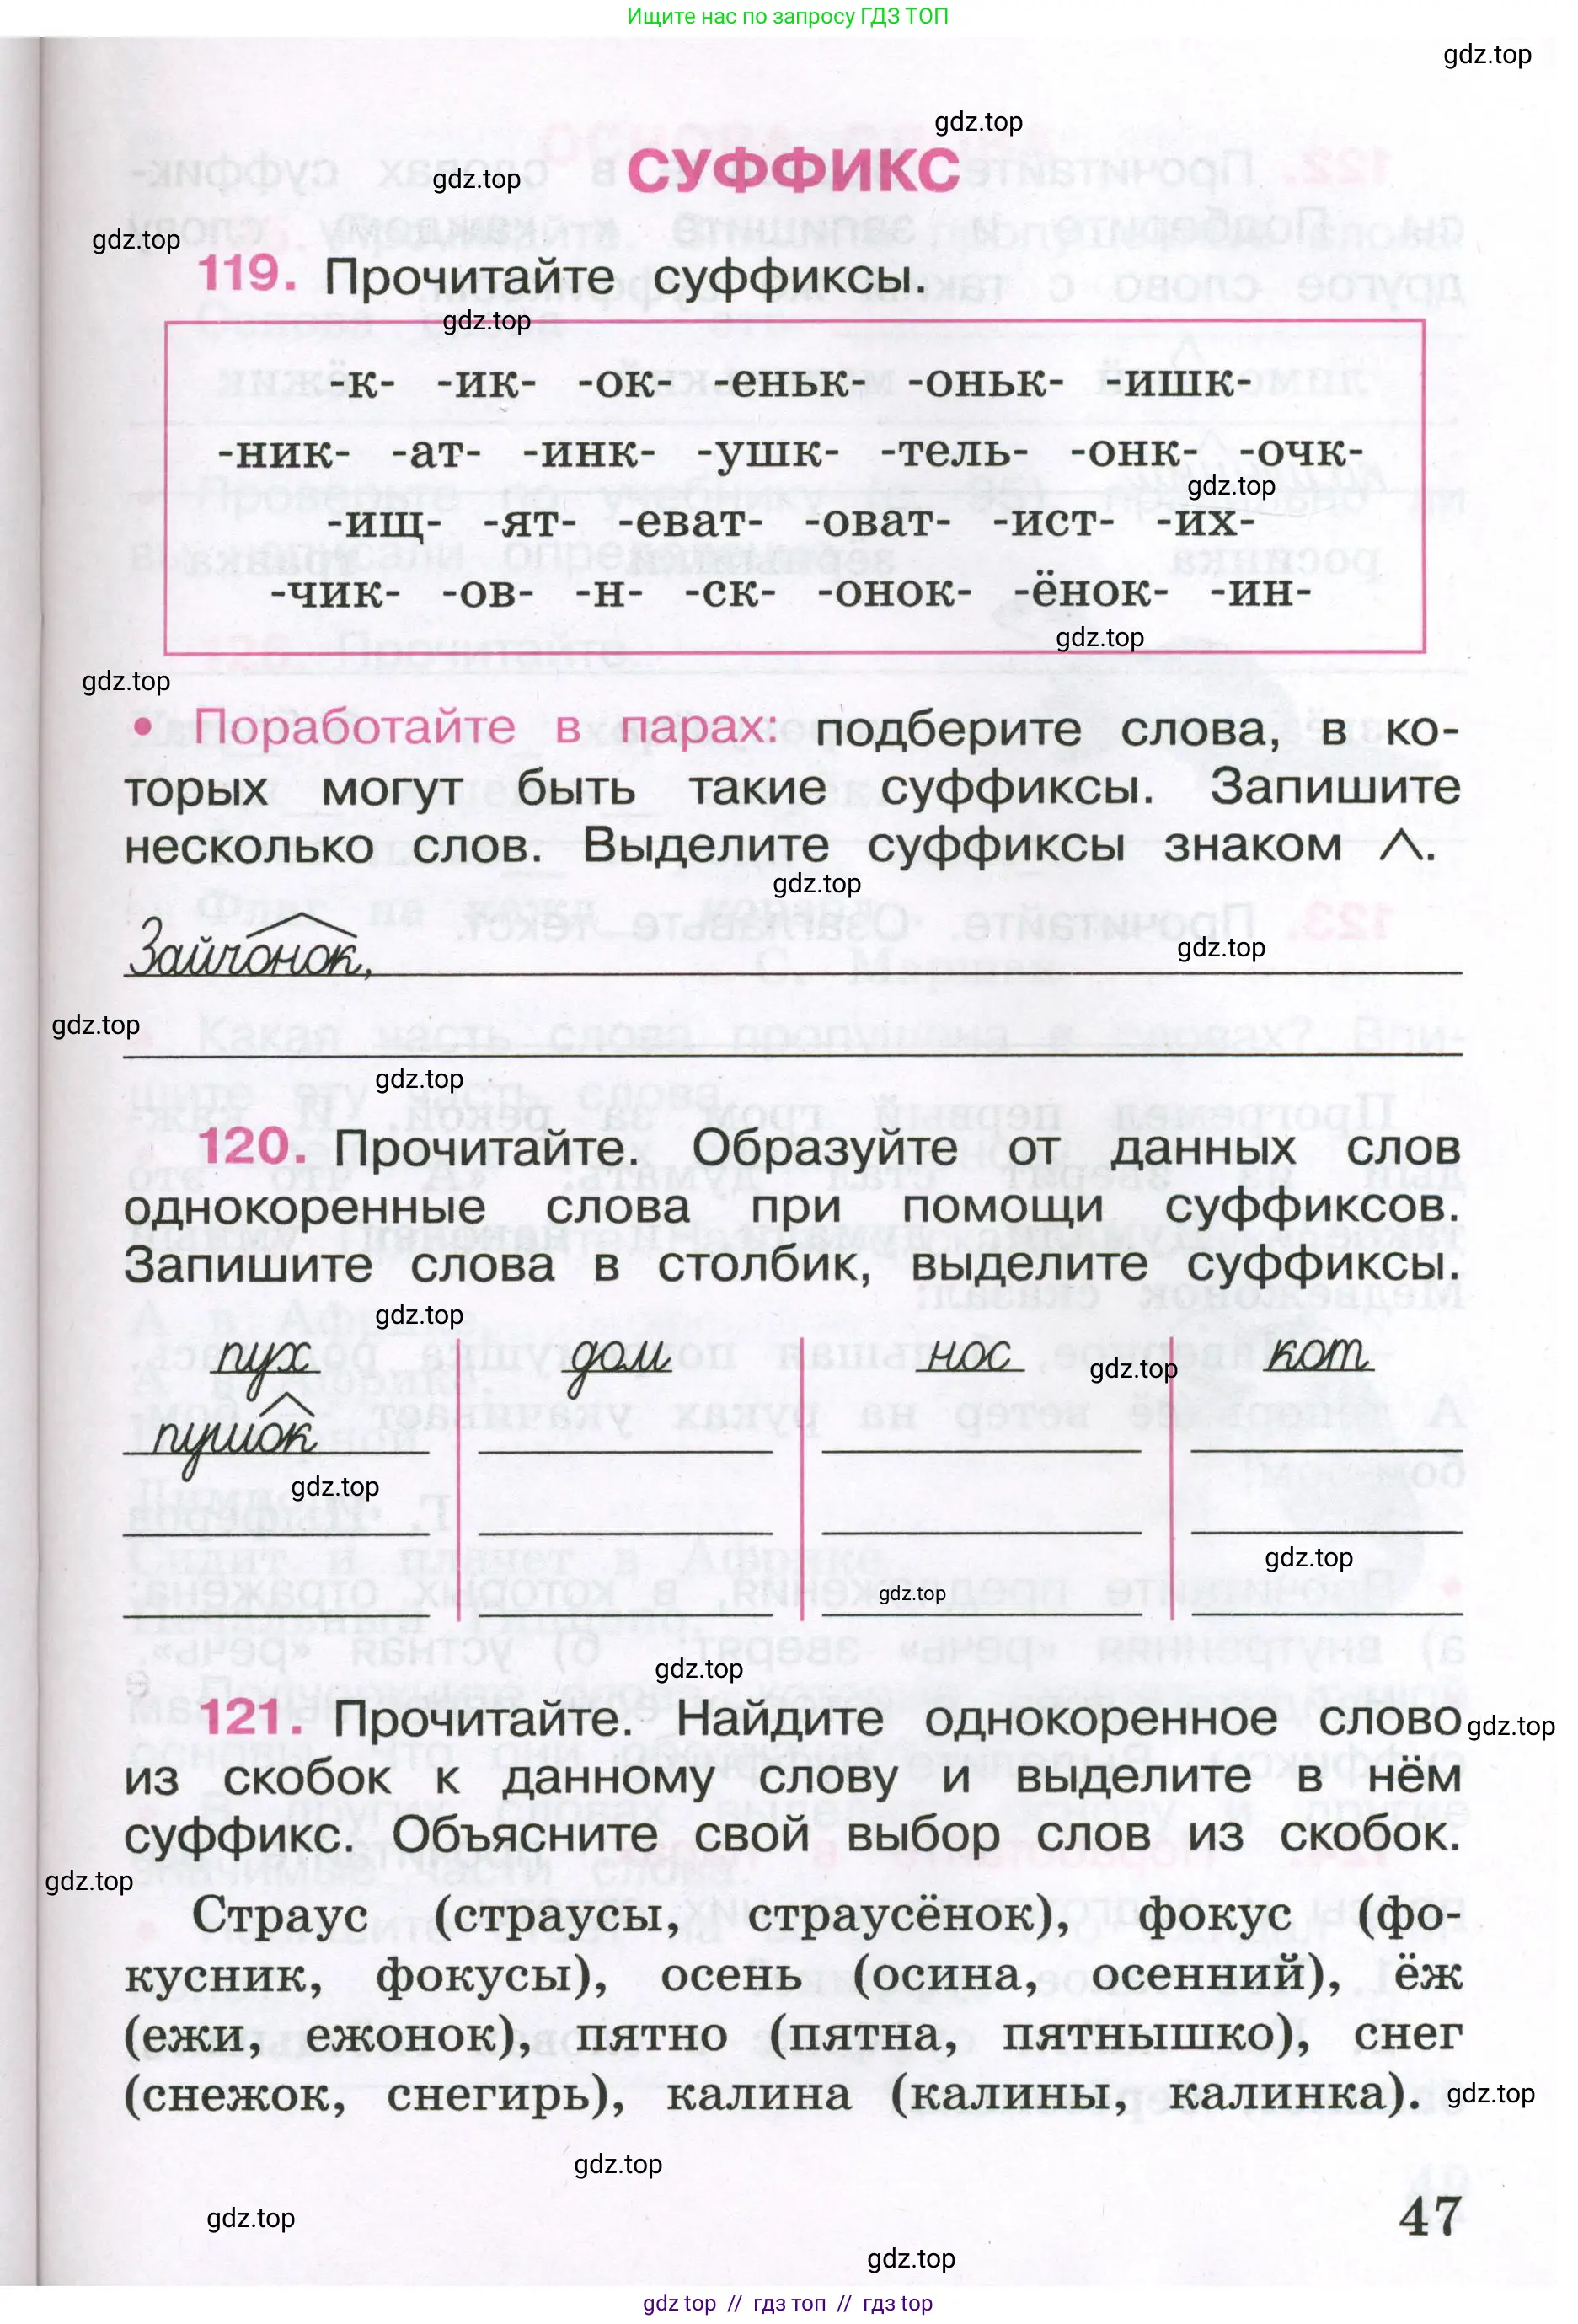 Ищите нас по запросу ГДЗ ТОП
gdz.top
gdz.top
СУФФИКС
gdz.top
gdz.top
119. Прочитайте суффиксы.
gdz.top
-к- -ик- -ок- -еньк- -оньк- -ишк-
-ник- -ат- -инк- -ушк- -тель- -онк- -очк-
gdz.top
-ищ- -ят- -еват- -оват- -ист- -их-
-чик- -ов- -н- -ск- -онок- -ёнок- -ин-
gdz.top
gdz.top
• Поработайте в парах: подберите слова, в ко-
торых могут быть такие суффиксы. Запишите
несколько слов. Выделите суффиксы знаком ^.
gdz.top
Зайчонок,
gdz.top
gdz.top
gdz.top
120. Прочитайте. Образуйте от данных слов
однокоренные слова при помощи суффиксов.
Запишите слова в столбик, выделите суффиксы.
gdz.top
пух дом нос кот
gdz.top
пушок
gdz.top
gdz.top
gdz.top
gdz.top
121. Прочитайте. Найдите однокоренное слово
gdz.top
из скобок к данному слову и выделите в нём
суффикс. Объясните свой выбор слов из скобок.
gdz.top
Страус (страусы, страусёнок), фокус (фо-
кусник, фокусы), осень (осина, осенний), ёж
(ежи, ежонок), пятно (пятна, пятнышко), снег
(снежок, снегирь), калина (калины, калинка).
gdz.top
gdz.top
gdz.top
47
gdz.top
gdz.top // гдз топ // гдз top